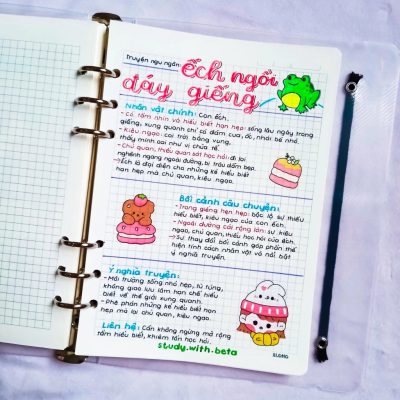 Truyện ngụ ngôn:
ếch ngồi
đáy giếng
Nhân vật chính: Con ếch.
- Có tầm nhìn và hiểu biết hạn hẹp: sống lâu ngày trong
giếng, xung quanh chỉ có đám cua, ốc, nhái bé nhỏ.
- Kiêu ngạo: coi trời bằng vung,
thấy mình oai như vị chúa tể.
- Chủ quan, thiếu quan sát học hỏi: đi lại
nghênh ngang ngoài đường, bị trâu dẫm bẹp.
→ Ếch là đại diện cho những kẻ hiểu biết
hạn hẹp mà chủ quan, kiêu ngạo.
Bối cảnh câu chuyện:
- Trong giếng hạn hẹp: bộc lộ sự thiếu
hiểu biết, kiêu ngạo của con ếch.
- Ngoài đường cái rộng lớn: sự kiêu
ngạo, chủ quan, thiếu học hỏi của ếch.
→ Sự thay đổi bối cảnh góp phần thể
hiện tính cách nhân vật và nổi bật
ý nghĩa truyện.
Ý nghĩa truyện:
- Môi trường sống nhỏ hẹp, tù túng,
không giao lưu làm hạn chế hiểu
biết về thế giới xung quanh.
- Phê phán những kẻ hiểu biết hạn
hẹp mà lại chủ quan, kiêu ngạo.
Liên hệ: Cần không ngừng mở rộng
tầm hiểu biết, khiêm tốn học hỏi.
study.with.beta
KLONG